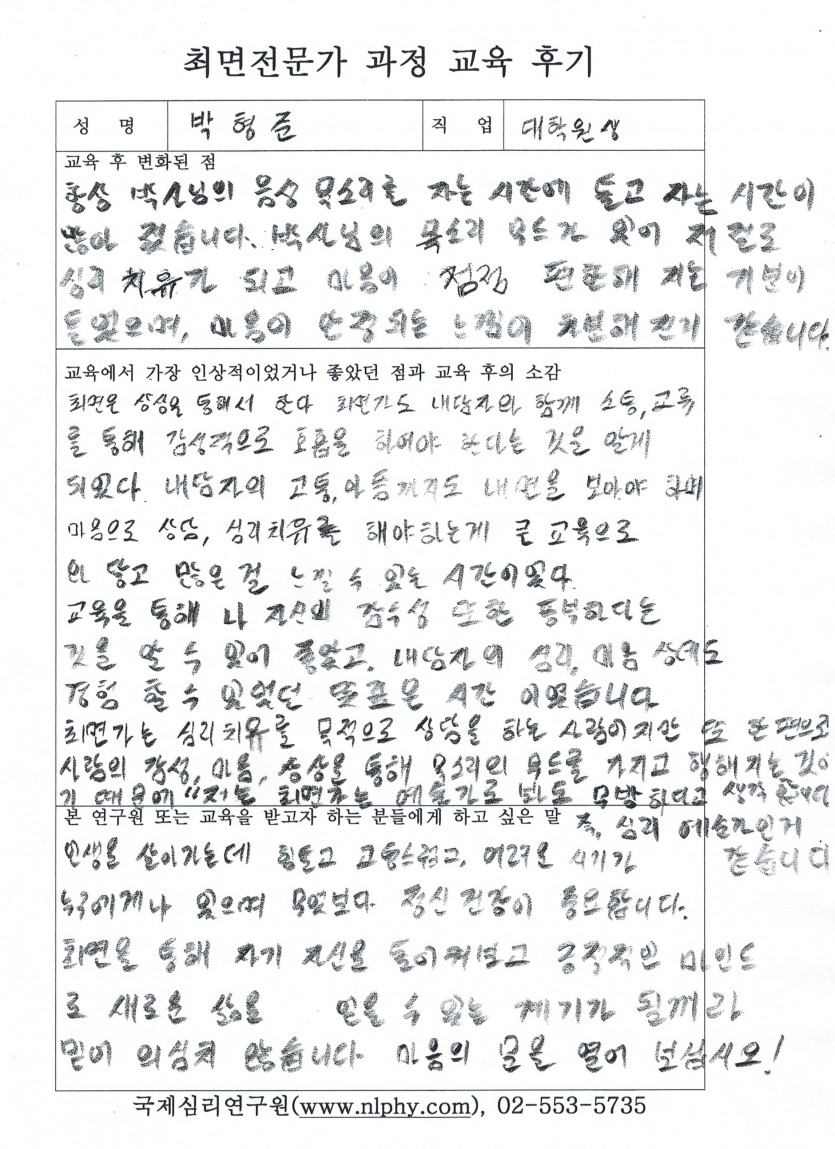 최면전문가 과정 교육 후기
성 명 박형준 직 업 대학원생
교육 후 변화된 점
항상 박사님의 음성 목소리를 자는 시간에 듣고 자는 시간이
많아 졌습니다. 박사님의 목소리 무드가 있어 저절로
심리 치유가 되고 마음이 점점 편안해 지는 기분이
들었으며, 마음이 안정되는 느낌이 차분해 진거 같습니다.
교육에서 가장 인상적이었거나 좋았던 점과 교육 후의 소감
최면은 상상을 통해서 한다 최면가도 내담자와 함께 소통, 교류
를 통해 감성적으로 호흡을 하여야 한다는 것을 알게
되었다. 내담자의 고통, 아픔까지도 내면을 보아야 하며
마음으로 상담, 심리치유를 해야하는게 큰 교육으로
와 닿고 많은걸 느낄 수 있는 시간이었다.
교육을 통해 나 자신의 감수성 또한 풍부하다는
것을 알 수 있어 좋았고, 내담자의 심리, 마음 상태도
경험 할 수 있었던 뜻깊은 시간 이였습니다
최면가는 심리치유를 목적으로 상담을 하는 사람이지만 또 한편으로
사람의 감성, 마음, 상상을 통해 목소리의 무드를 가지고 행해지는 것이
기 때문에 "저는 최면가는 예술가로 봐도 무방하다고 생각
본 연구원 또는 교육을 받고자 하는 분들에게 하고 싶은 말 즉, 심리 예술가인거
인생을 살아가는데 힘들고 고통스럽고, 어려운 시기가 같습니다
누구에게나 있으며 무엇보다 정신건강이 중요합니다.
최면을 통해 자기 자신을 돌이켜보고 긍정적인 마인드
로 새로운 삶을 얻을 수 있는 계기가 될꺼라
믿어 의심치 않습니다 마음의 문을 열어 보십시오!
국제심리연구원(www.nlphy.com), 02-553-5735